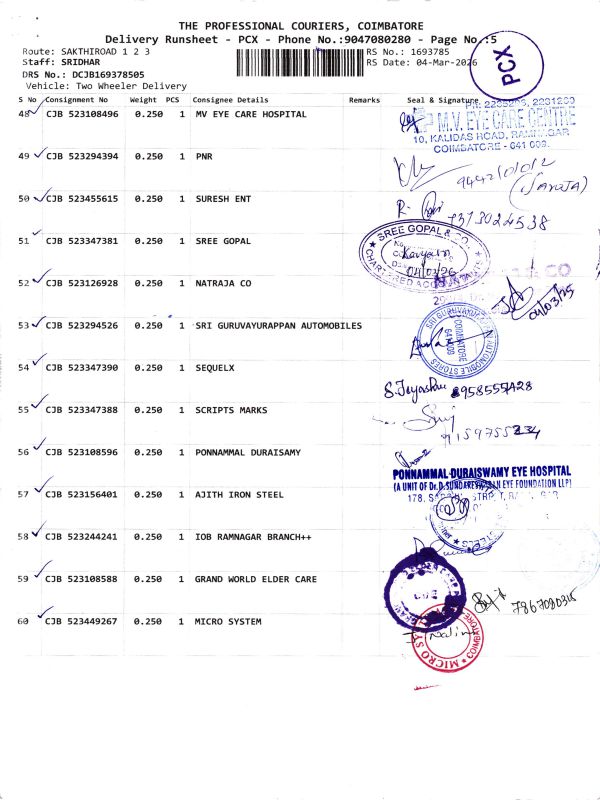 THE PROFESSIONAL COURIERS, COIMBATORE
Delivery Runsheet - PCX - Phone No.:9047080280 - Page No.:5
Route: SAKTHIROAD 1 2 3
RS No.: 1693785
Staff: SRIDHAR
RS Date: 04-Mar-2026
PCX
DRS No.: DCJB169378505
Vehicle: Two Wheeler Delivery
S No Consignment No Weight PCS Consignee Details Remarks Seal & Signature
48 CJB 523108496 0.250 1 MV EYE CARE HOSPITAL
M.V. EYE CARE CENTRE
10, KALIDAS ROAD, RAMNAGAR
COIMBATORE - 641 009.
49 CJB 523294394 0.250 1 PNR
50 CJB 523455615 0.250 1 SURESH ENT
7373024538
51 CJB 523347381 0.250 1 SREE GOPAL
SREE GOPAL & CO.
CHARTERED ACCOUNTANTS
04/03/26
52 CJB 523126928 0.250 1 NATRAJA CO
53 CJB 523294526 0.250 1 SRI GURUVAYURAPPAN AUTOMOBILES
COIMBATORE
54 CJB 523347390 0.250 1 SEQUELX
55 CJB 523347388 0.250 1 SCRIPTS MARKS
56 CJB 523108596 0.250 1 PONNAMMAL DURAISAMY
PONNAMMAL DURAISWAMY EYE HOSPITAL
(A UNIT OF Dr.D.SUNDARESWARAN EYE FOUNDATION LLP)
57 CJB 523156401 0.250 1 AJITH IRON STEEL
58 CJB 523244241 0.250 1 IOB RAMNAGAR BRANCH++
59 CJB 523108588 0.250 1 GRAND WORLD ELDER CARE
60 CJB 523449267 0.250 1 MICRO SYSTEM
MICRO SYS
COIMBATORE